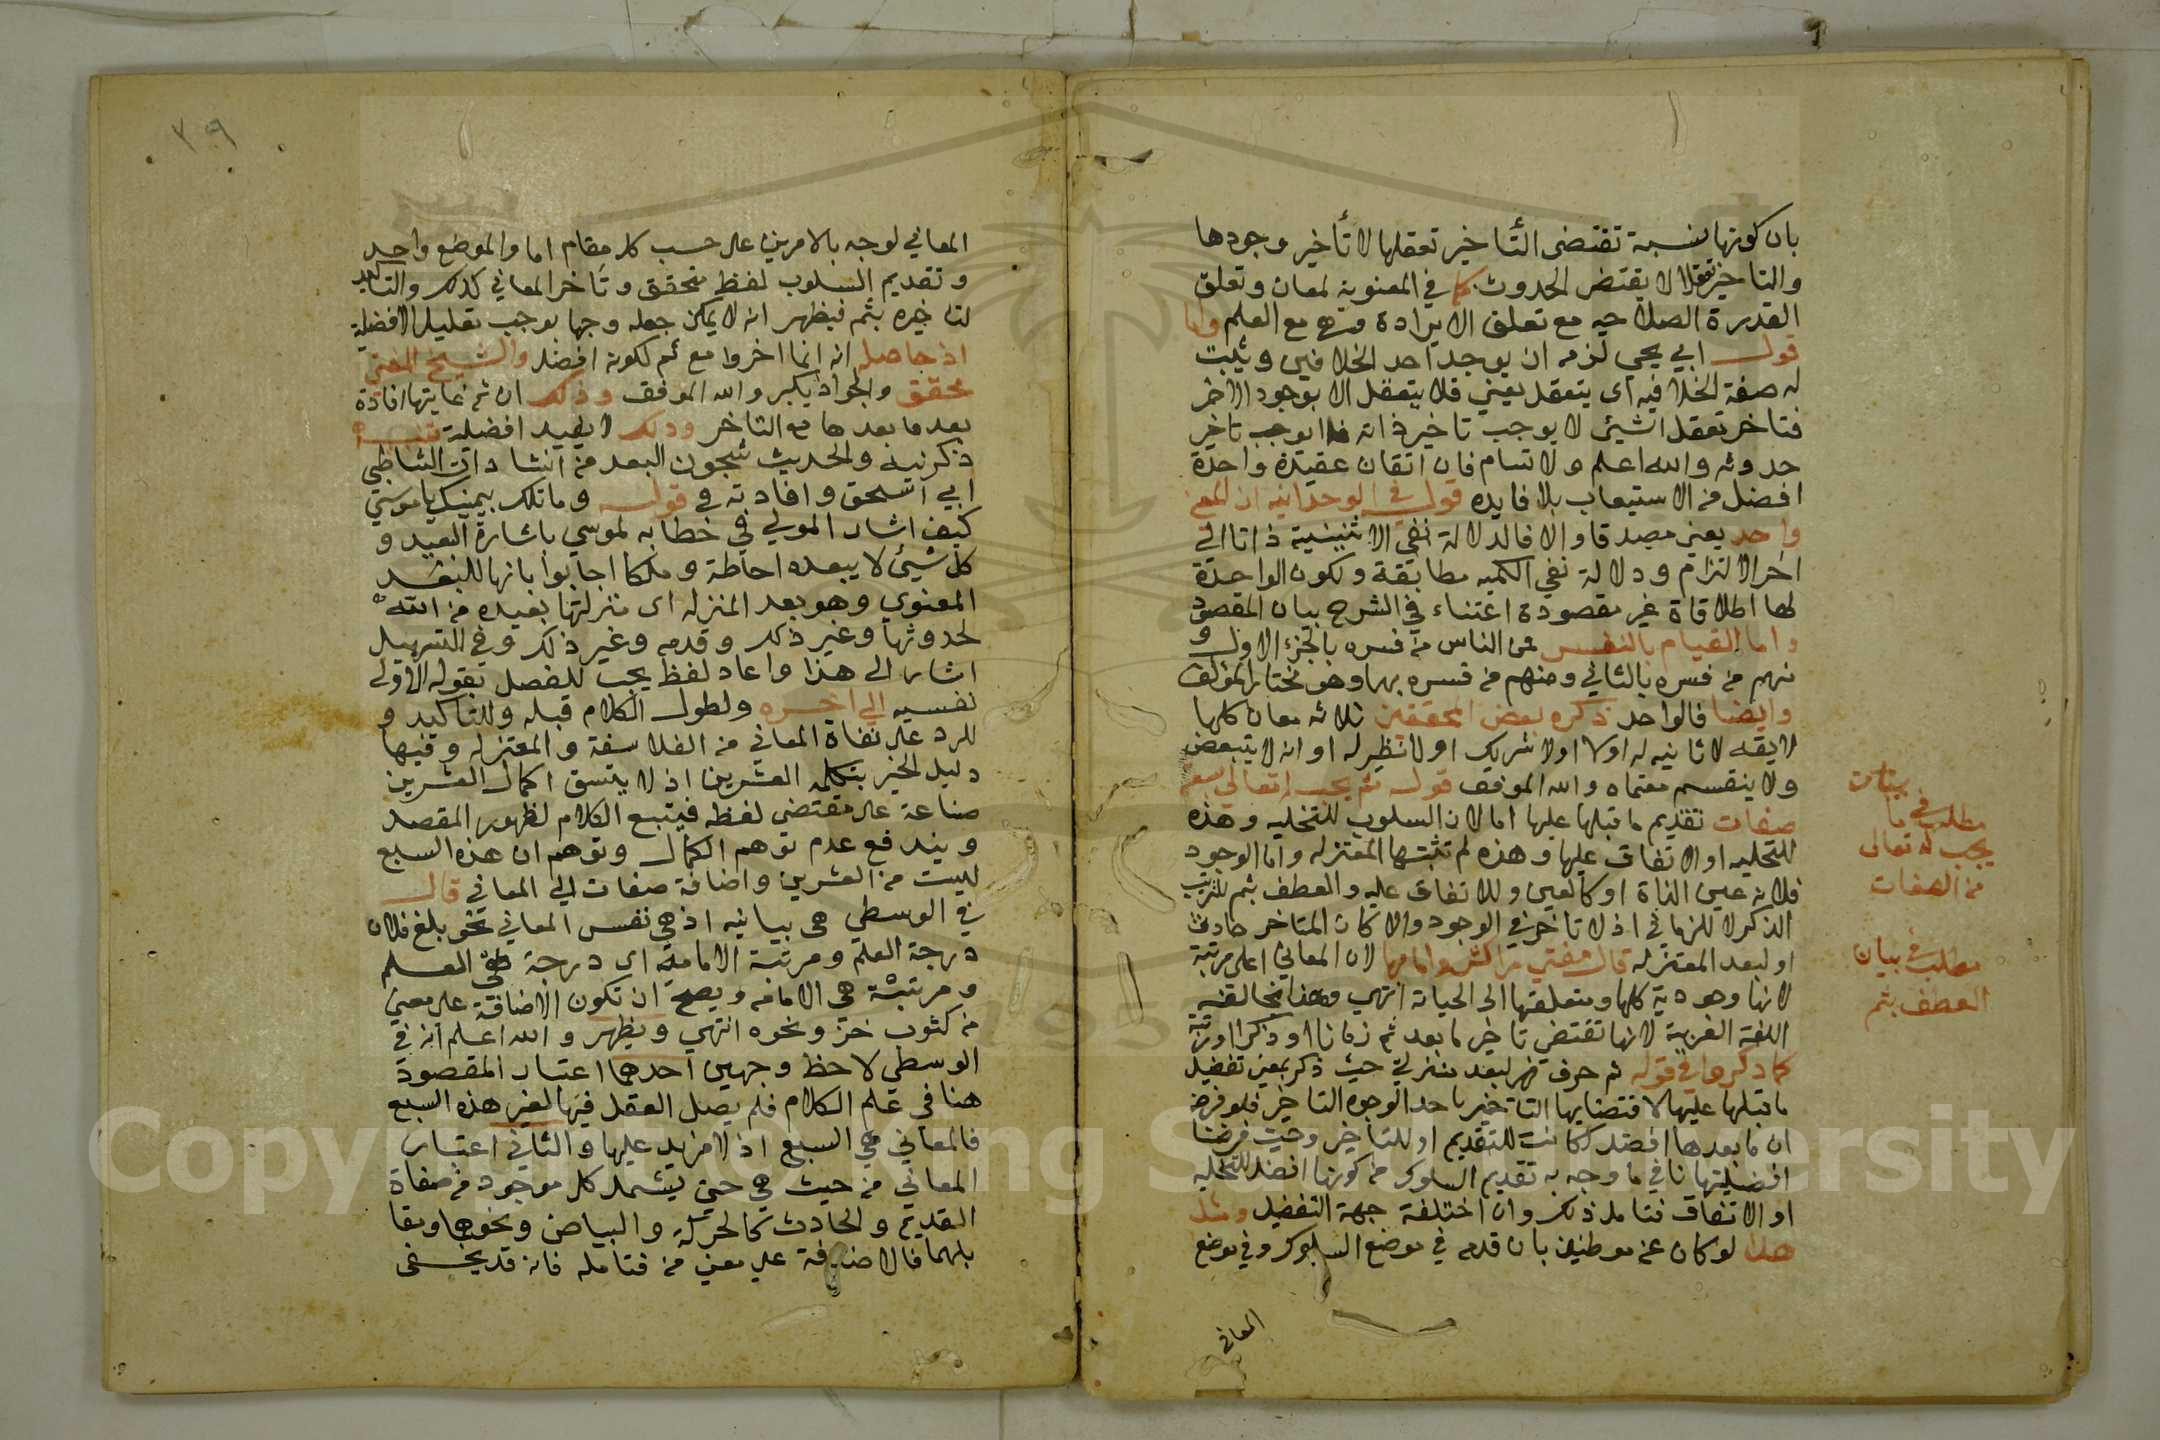 بان كونها نسبة تقتضى التأخير تعقلها لا تأخير وجودها
والتاخير تعقلا لا يقتضى الحدوث كما في المعنوية لمعان وتعلق
القدرة الصلاحيه مع تعلق الارادة منهج مع العلم واما
قول ابي يحيى لزمه ان يوجد احد الخلافين ويثبت
له صفة الخلافيه اى يتعقل يعني فلا يتعقل الا بوجود الاخر
فتاخر تعقل الشيئ لا يوجب تاخير ذاته فلا يوجب تاخير
حدوثه والله اعلم ولا تسام فان اتقان عقيدة واحدة
افضل من الاستيعاب بلا فايده قوله في الوحدانيه ان المعنى
واحد يعني مصدقا والا فالدلالة نفي الاثنينية ذاتا الى
اخر الالتزام ودلالة نفي الكميه مطابقة ولكون الواحدة
لها اطلاقاة غير مقصودة اعتناء في الشرح بيان المقصود
واما القيام بالنفس فمن الناس من فسره بالجزء الاول و
منهم من فسره بالثاني ومنهم من فسره بهما وهو مختار المؤلف
وايضا فالواحد ذكره بعض المحققين ثلاثه معان كلها
لايقه لا ثانيه له اولا اولا شريك اولا نظير له او انه لا يتبعض
ولا ينقسم معتماه والله الموفق قوله ثم يجب له تعالى سبع
صفات تقديم ما قبلها عليها اما لان السلوب للتخليه وهذه
للتحليه او الاتفاق عليها وهذه لم تثبتها المعتزله واما الوجود
فلانه عين الذاة او كالعين وللاتفاق عليه والعطف بثم للترتيب
الذكر لا للزماني اذ لا تاخر في الوجود والا كان المتاخر حادث
او لبعد المعتزله قال مفتي مراكش وامامها لان المعاني اعلى مرتبة
لانها وجودية كلها ومتعلقها الى الحياة انتهى وهذا يخالفه
اللغة العربية لانها تقتضى تاخير ما بعد ثم زمانا او ذكرا او رتبة
كما ذكروا في قوله ثم حرف نهر لبعد منزلتي حيث ذكر بمعنى تفضيل
ما قبلها عليها لاقتضايها التاخير باحد الوجوه التاخير فلو فرض
ان ما بعدها افضل لكانت للتقديم او للتاخير وحيث فرضنا
افضليتها نافي ما وجه به تقديم السلوك من كونها افضل للتخليه
او الاتفاق فتامل ذلك وان اختلفة جهة التفضيل ومثل
هذا لو كان عن موطنين بان قدم في موضع السلوك وفي موضع
المعاني
بيان
مطلب في ما
يجب له تعالى
من الصفات
مطلب في بيان
العطف بثم
٣٩
المعاني لوجه بالامرين على حسب كل مقام اما والموضع واحد
وتقديم السلوب لفظ متحقق وتاخر المعاني كذلك والتاكيد
لتاخيره بثم فيظهر انه لا يمكن جعله وجها يوجب تعليل الافضلية
اذ حاصله انه انما اخروا مع ثم لكونه افضل والشيخ المفتي
محقق والجواد يكبر والله الموفق وذلك ان ثم غايتها افادة
بعد ما بعدها مع التاخر وذلك لا يفيد افضلية تنبيه
ذكرنيه والحديث شجون البعد من انشادات الشاطبي
ابي اسحق وافادته في قوله وما تلك بيمينك يا موسى
كيف اشار المولى في خطابه لموسى باشارة البعيد و
كل شيئ لا يبعده احاطة وملكا اجابوا بانها للبعد
المعنوي وهو بعد المنزله اى منزلتها بعيده من الله
لحدوثها وغير ذلك وقدمه وغير ذلك وفي التسهيل
اشار الى هذا واعاد لفظ يجب للفصل بقوله الاولى
نفسيه الى اخره ولطول الكلام قبله وللتاكيد و
للرد على نفاة المعاني من الفلاسفة والمعتزله وفيها
دليل الخبر بتكلمه العشرين اذ لا يتسق اكمال العشرين
صناعة على مقتضى لفظه فيتبع الكلام لظهور المقصد
ويندفع عدم توهم الكمال وتوهم ان هذه السبع
ليست من العشرين واضافة صفات الى المعاني قال
في الوسطى هى بيانيه اذ هى نفس المعاني نحو بلغ فلان
درجة العلم ومرتبة الامامة اى درجة هى العلم
ومرتبة هي الامامه ويصح ان تكون الاضافة على معنى
من كثوب خز ونحوه انتهى ويظهر والله اعلم انه في
الوسطى لاحظ وجهين احدهما اعتبار المقصودة
هنا في علم الكلام فلم يصل العقل فيها لغير هذه السبع
فالمعاني هي السبع اذ لا مزيد عليها والثاني اعتبار
المعاني من حيث هي حتى يشمل كل موجود من صفاة
القديم والحادث كالحركة والبياض ونحوها وبقا
بلهما فالاضافة على معنى من فتامله فانه قد يخفى